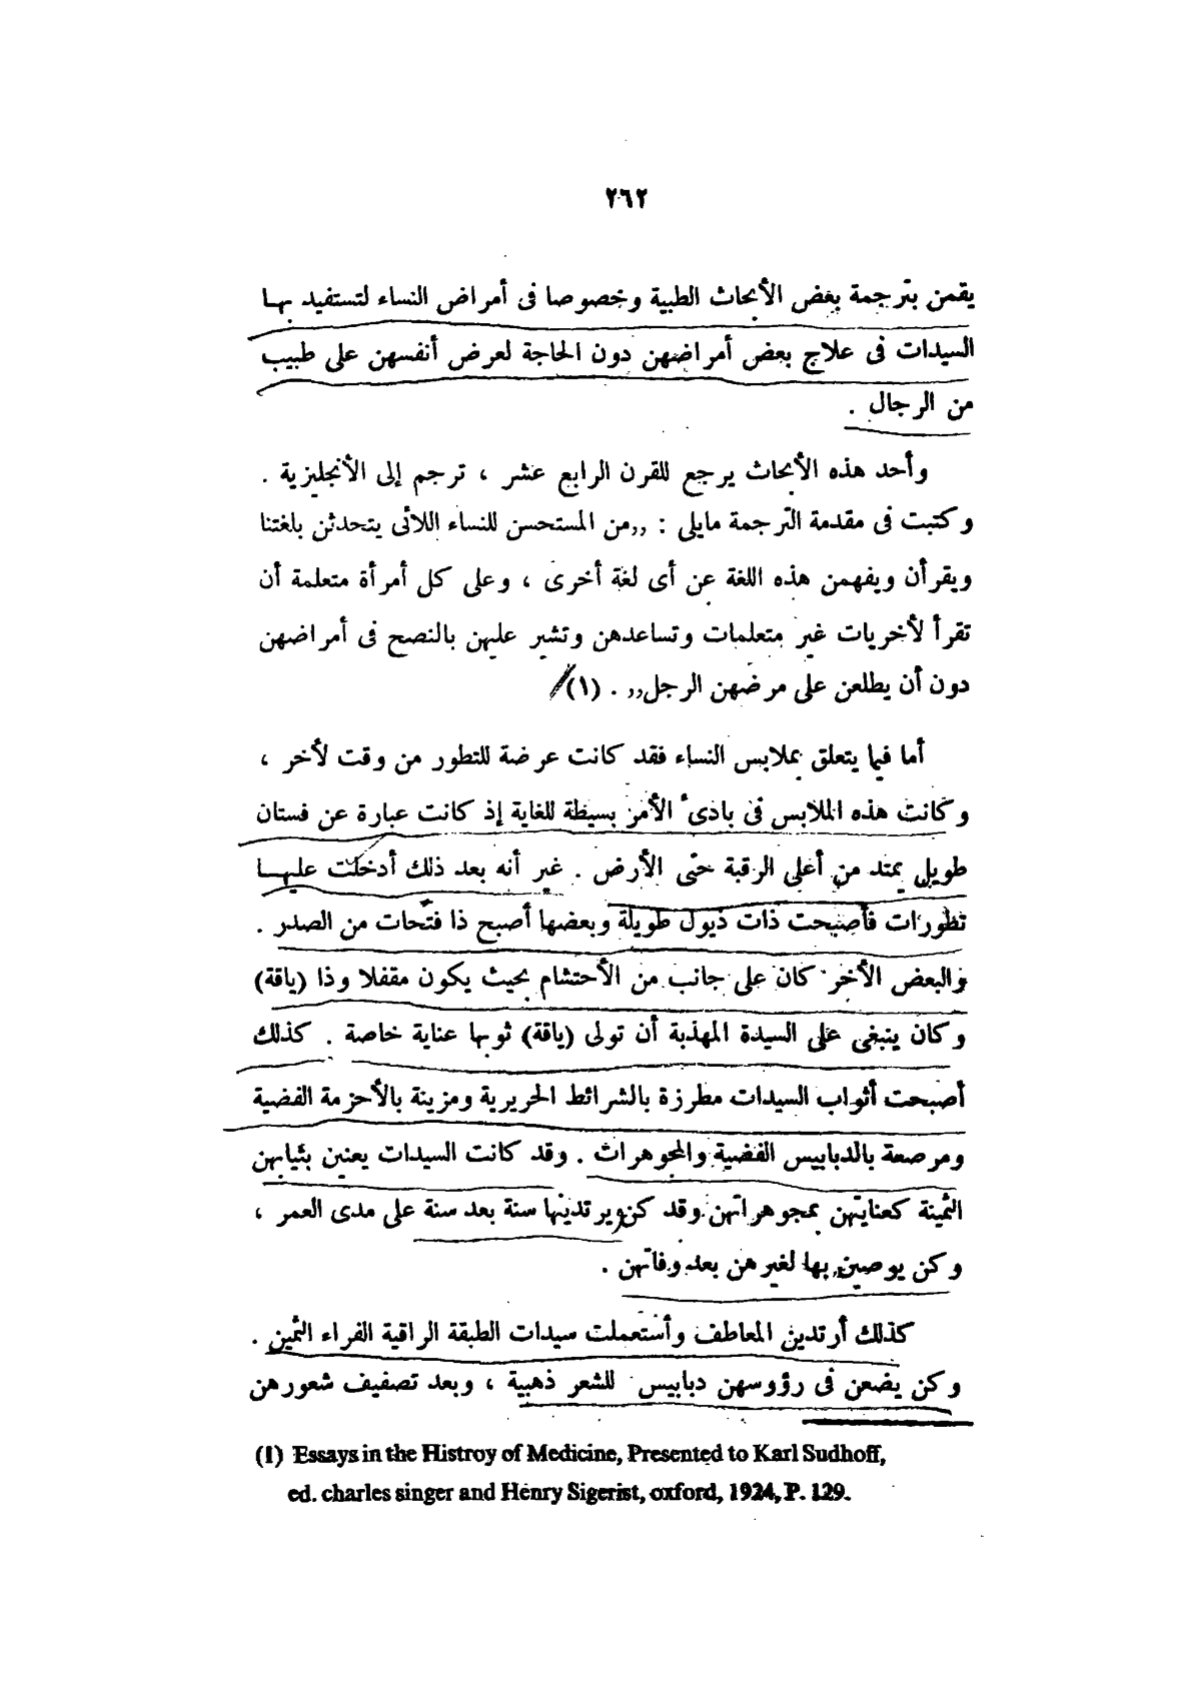 ٢٦٢
يقمن بترجمة بعض الأبحاث الطبية وخصوصا فى أمراض النساء لتستفيد بهـا
السيدات فى علاج بعض أمراضهن دون الحاجة لعرض أنفسهن على طبيب
من الرجال .
وأحد هذه الأبحاث يرجع للقرن الرابع عشر ، ترجم إلى الأنجليزية .
وكتبت فى مقدمة الترجمة مايلى : ,,من المستحسن للنساء اللائى يتحدثن بلغتنا
ويقرأن ويفهمن هذه اللغة عن أى لغة أخرى ، وعلى كل أمرأة متعلمة أن
تقرأ لأخريات غير متعلمات وتساعدهن وتشير عليهن بالنصح فى أمراضهن
دون أن يطلعن على مرضهن الرجل,, . (١)
أما فيما يتعلق بملابس النساء فقد كانت عرضة للتطور من وقت لأخر ،
وكانت هذه الملابس فى بادىء الأمر بسيطة للغاية إذ كانت عبارة عن فستان
طويل يمتد من أعلى الرقبة حتى الأرض . غير أنه بعد ذلك أدخلت عليهـا
تطورات فأصبحت ذات ذيول طويلة وبعضها أصبح ذا فتحات من الصدر .
والبعض الأخر كان على جانب من الأحتشام بحيث يكون مقفلا وذا (ياقة)
وكان ينبغى على السيدة المهذبة أن تولى (ياقة) ثوبها عناية خاصة . كذلك
أصبحت أثواب السيدات مطرزة بالشرائط الحريرية ومزينة بالأحزمة الفضية
ومرصعة بالدبابيس الفضية والمجوهرات . وقد كانت السيدات يعنين بثيابهن
الثمينة كعنايتهن بمجوهراتهن وقد كن يرتدينها سنة بعد سنة على مدى العمر ،
وكن يوصين بها لغيرهن بعد وفاتهن .
كذلك أرتدين المعاطف وأستعملت سيدات الطبقة الراقية الفراء الثمين .
وكن يضعن فى رؤوسهن دبابيس للشعر ذهبية ، وبعد تصفيف شعورهن
(1) Essays in the Histroy of Medicine, Presented to Karl Sudhoff,
ed. charles singer and Henry Sigerist, oxford, 1924, P. 129.